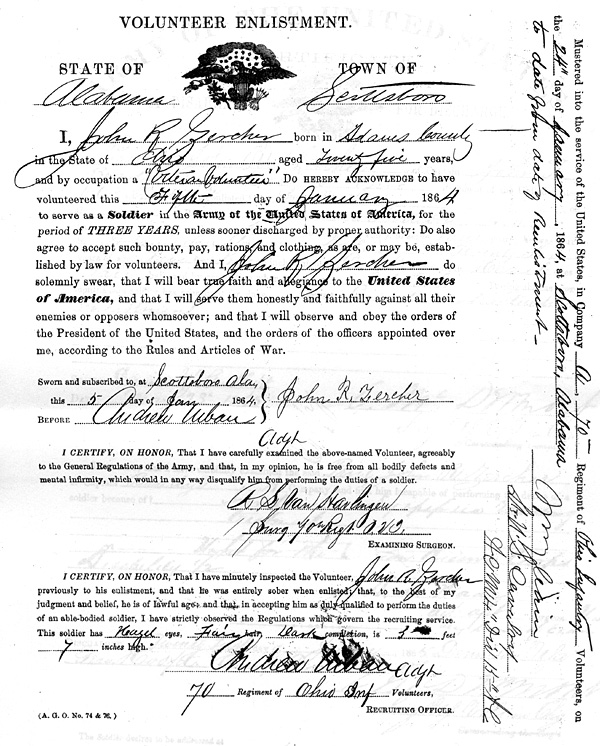 VOLUNTEER ENLISTMENT.
STATE OF TOWN OF
Alabama Scottsboro
I, John R. Zercher born in Adams County
in the State of Ohio aged Twenty five years,
and by occupation a "Veteran Volunteer" Do HEREBY ACKNOWLEDGE to have
volunteered this Fifth day of January 1864
to serve as a Soldier in the Army of the United States of America, for the
period of THREE YEARS, unless sooner discharged by proper authority: Do also
agree to accept such bounty, pay, rations, and clothing, as are, or may be, estab-
lished by law for volunteers. And I, John R. Zercher do
solemnly swear, that I will bear true faith and allegiance to the United States
of America, and that I will serve them honestly and faithfully against all their
enemies or opposers whomsoever; and that I will observe and obey the orders of
the President of the United States, and the orders of the officers appointed over
me, according to the Rules and Articles of War.
Sworn and subscribed to, at Scottsboro Ala,
this 5 day of Jan 1864
John R. Zercher
BEFORE Andrew Urban
Adjt
I CERTIFY, ON HONOR, That I have carefully examined the above-named Volunteer, agreeably
to the General Regulations of the Army, and that, in my opinion, he is free from all bodily defects and
mental infirmity, which would in any way disqualify him from performing the duties of a soldier.
Van Harlingen
Surg 70 Regt O.V.I.
EXAMINING SURGEON.
I CERTIFY, ON HONOR, That I have minutely inspected the Volunteer, John R. Zercher
previously to his enlistment, and that he was entirely sober when enlisted; that, to the best of my
judgment and belief, he is of lawful age; and that, in accepting him as duly qualified to perform the duties
of an able-bodied soldier, I have strictly observed the Regulations which govern the recruiting service.
This soldier has Hazel eyes, Fair hair, Dark complexion, is 5 feet
7 inches high.
Andrew Urban Adjt
70 Regiment of Ohio Inf Volunteers,
RECRUITING OFFICER.
(A. G. O. No. 74 & 76.)
Mustered into the service of the United States, in Company A, 70 Regiment of Ohio Infantry Volunteers, on
the 24th day of January, 1864, at Scottsboro, Alabama
to date from date of Reenlistment